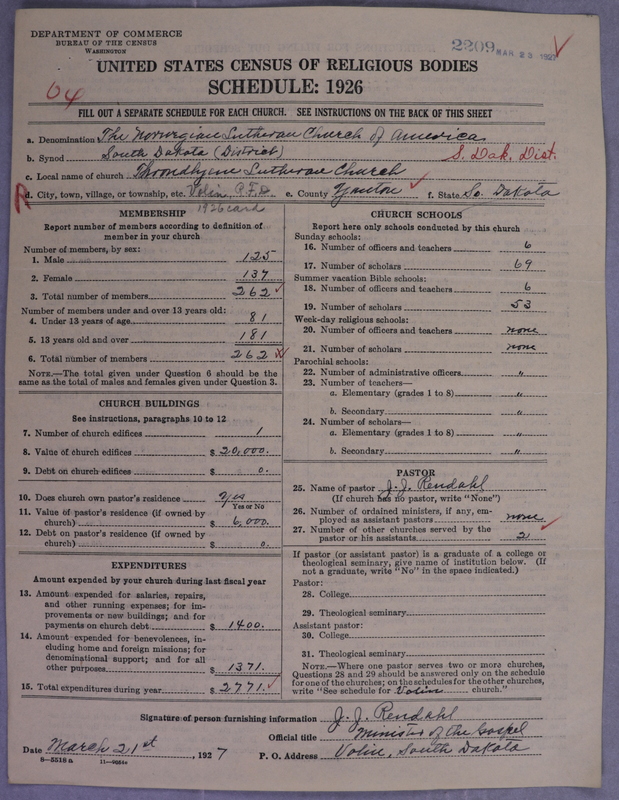 DEPARTMENT OF COMMERCE
BUREAU OF THE CENSUS
WASHINGTON
2209 MAR 23 1927
UNITED STATES CENSUS OF RELIGIOUS BODIES
SCHEDULE: 1926
04
FILL OUT A SEPARATE SCHEDULE FOR EACH CHURCH. SEE INSTRUCTIONS ON THE BACK OF THIS SHEET
a. Denomination The Norwegian Lutheran Church of America
b. Synod South Dakota (District) S. Dak. Dist.
c. Local name of church Throndhjem Lutheran Church
d. City, town, village, or township, etc. Volin, e. County Yankton f. State So. Dakota
1926 card
MEMBERSHIP
Report number of members according to definition of
member in your church
Number of members, by sex:
1. Male 125
2. Female 137
3. Total number of members 262
Number of members under and over 13 years old:
4. Under 13 years of age 81
5. 13 years old and over 181
6. Total number of members 262
NOTE.—The total given under Question 6 should be the
same as the total of males and females given under Question 3.
CHURCH BUILDINGS
See instructions, paragraphs 10 to 12
7. Number of church edifices 1
8. Value of church edifices $ 20,000.
9. Debt on church edifices $ 0.
10. Does church own pastor's residence Yes
Yes or No
11. Value of pastor's residence (if owned by
church) $ 6,000.
12. Debt on pastor's residence (if owned by
church) $ 0.
EXPENDITURES
Amount expended by your church during last fiscal year
13. Amount expended for salaries, repairs,
and other running expenses; for im-
provements or new buildings; and for
payments on church debt $ 1400.
14. Amount expended for benevolences, in-
cluding home and foreign missions; for
denominational support; and for all
other purposes $ 1371.
15. Total expenditures during year $ 2771.
CHURCH SCHOOLS
Report here only schools conducted by this church
Sunday schools:
16. Number of officers and teachers 6
17. Number of scholars 69
Summer vacation Bible schools:
18. Number of officers and teachers 6
19. Number of scholars 53
Week-day religious schools:
20. Number of officers and teachers none
21. Number of scholars none
Parochial schools:
22. Number of administrative officers "
23. Number of teachers—
a. Elementary (grades 1 to 8) "
b. Secondary "
24. Number of scholars—
a. Elementary (grades 1 to 8) "
b. Secondary "
PASTOR
25. Name of pastor J. J. Rendahl
(If church has no pastor, write "None")
26. Number of ordained ministers, if any, em-
ployed as assistant pastors none
27. Number of other churches served by the
pastor or his assistants 2
If pastor (or assistant pastor) is a graduate of a college or
theological seminary, give name of institution below. (If
not a graduate, write "No" in the space indicated.)
Pastor:
28. College
29. Theological seminary
Assistant pastor:
30. College
31. Theological seminary
NOTE.—Where one pastor serves two or more churches,
Questions 28 and 29 should be answered only on the schedule
for one of the churches; on the schedules for the other churches,
write "See schedule for Volin church."
Signature of person furnishing information J. J. Rendahl
Official title Minister of the Gospel
Date March 21st, 1927 P. O. Address Volin, South Dakota
8—5518 a